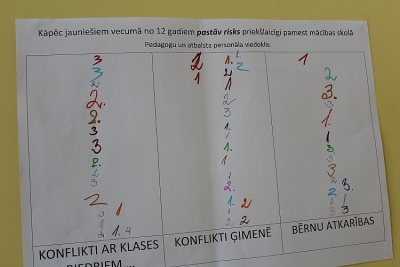 Kāpēc jauniešiem vecumā no 12 gadiem pastāv risks priekšlaicīgi pamest mācības skolā
Pedagogu un atbalsta personāla viedoklis
3
3
2
2.
2.
3
3
2.
2
3
2
1
2
1
1.
2
2
1
1
2
3
1
1
2.
1.
2
2
1
2
3.
3
1.
1
3
2
3.
2
1
3
3
KONFLIKTI AR KLASES
BIEDRIEM...
KONFLIKTI ĢIMENĒ
BĒRNU ATKARĪBAS